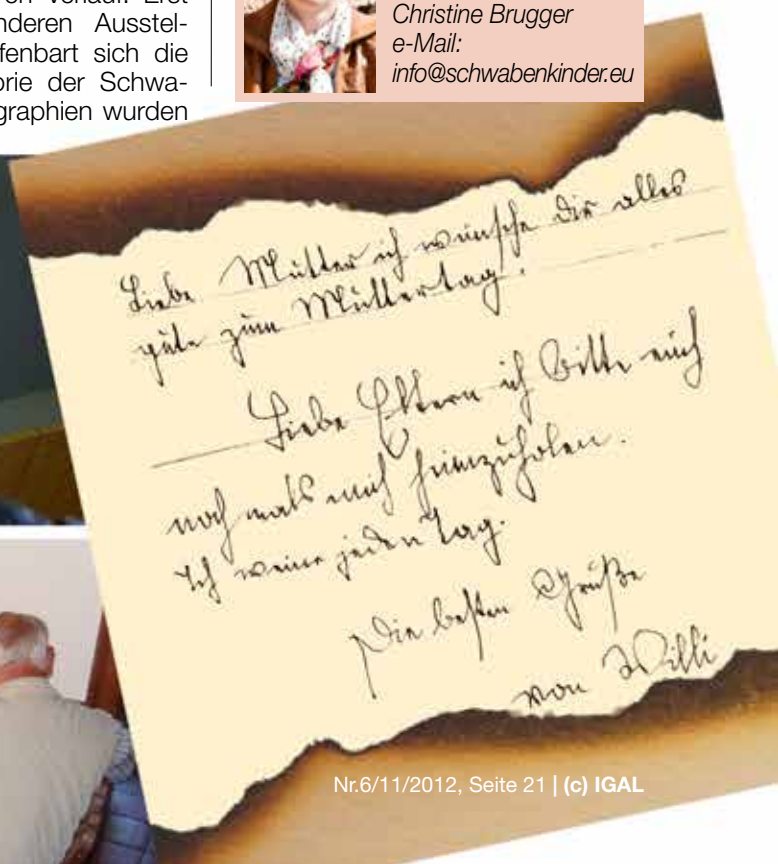 nderen Ausstel-
fenbart sich die
orie der Schwa-
graphien wurden
Christine Brugger
e-Mail:
info@schwabenkinder.eu
Liebe Mutter ich wünsche dir alles
gute zum Muttertag.
Liebe Eltern ich bitte euch
noch mals mich heimzuholen.
Ich weine jeden Tag.
Die besten Grüße
von Willi
Nr.6/11/2012, Seite 21 | (c) IGAL